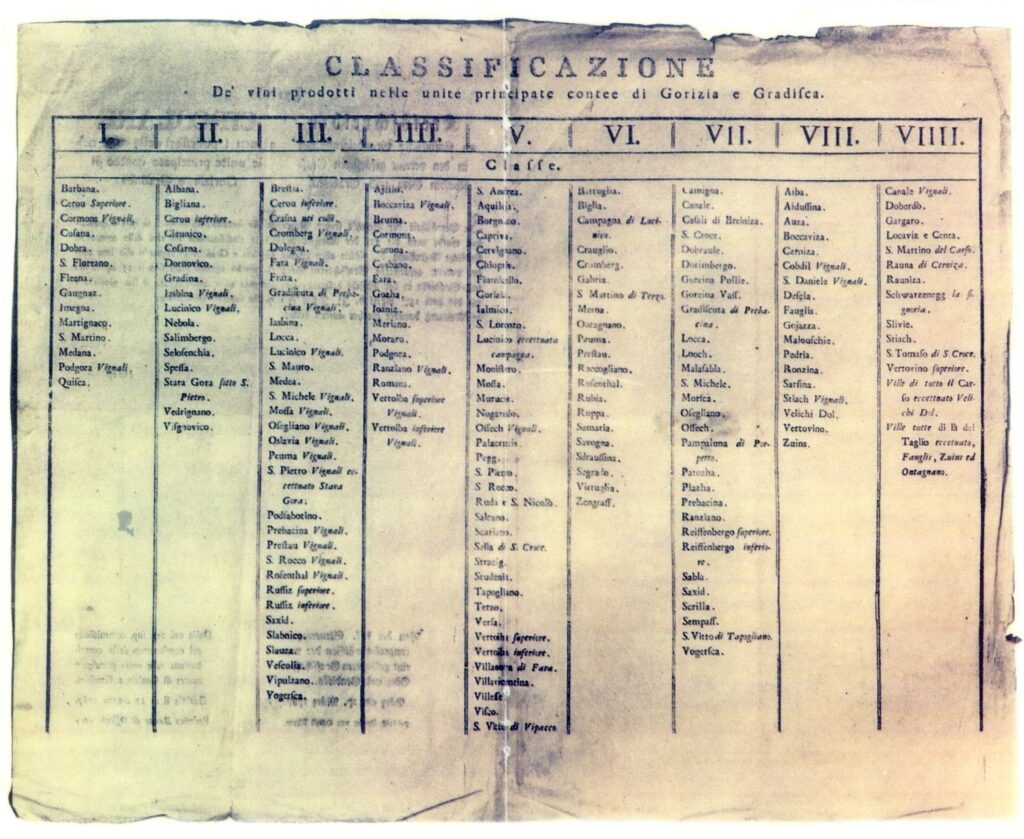 CLASSIFICAZIONE
De' vini prodotti nelle unite principate contee di Gorizia e Gradiſca.
I. II. III. IIII. V. VI. VII. VIII. VIIII.
Claſſe.
Barbana.
Cerou Superiore.
Cormons Vignali.
Coſana.
Dobra.
S. Floreano.
Fleana.
Gaugnaz.
Imegna.
Martignaco.
S. Martino.
Medana.
Podgora Vignali.
Quiſca.
Albana.
Bigliana.
Cerou inferiore.
Cleunico.
Coſarna.
Dornovico.
Gradina.
Iasbina Vignali.
Lucinico Vignali.
Nebola.
Salimbergo.
Seloſenchia.
Speſſa.
Stara Gora ſotto S.
Pietro.
Vedrignano.
Viſgnovico.
Breſtia.
Cerou inferiore.
Craſna nei colli.
Cromberg Vignali.
Dolegna.
Fara Vignali.
Fratta.
Gradiſcuta di Preba-
cina Vignali.
Iasbina.
Locca.
Lucinico Vignali.
S. Mauro.
Medea.
S. Michele Vignali.
Moſſa Vignali.
Oſegliano Vignali.
Oslavia Vignali.
Peuma Vignali.
S. Pietro Vignali ec-
cettuato Stara
Gora.
Podſabotino.
Prebacina Vignali.
Preſtau Vignali.
S. Rocco Vignali.
Roſenthal Vignali.
Ruffiz ſuperiore.
Ruffiz inferiore.
Saxid.
Slabnico.
Slauza.
Veſcolla.
Vipulzano.
Vogerſca.
Ajello.
Boccaviza Vignali.
Bruma.
Cormons.
Corona.
Fara.
Meriano.
Moraro.
Podgora.
Ranziano Vignali.
Romans.
Vertoiba ſuperiore
Vignali.
Vertoiba inferiore
Vignali.
S. Andrea.
Aquileja.
Borgnano.
Capriva.
Cervignano.
Chiopris.
Fiumicello.
Gorizia.
Ialmico.
S. Lorenzo.
Lucinico eccettuata
campagna.
Monſtero.
Moſſa.
Muruzis.
Nogaredo.
Oſſech Vignali.
S. Pietro.
S. Rocco.
Ruda e S. Nicolò.
Salcano.
Scariano.
Sella di S. Croce.
Stracig.
Studeniz.
Tapogliano.
Terzo.
Verſa.
Vertoiba ſuperiore.
Vertoiba inferiore.
Villanova di Fara.
Villavicentina.
Villeſſe.
Viſco.
S. Vitto di Vipacco.
Battuglia.
Biglia.
Campagna di Luci-
nico.
Crauglio.
Cromberg.
Gabria.
S. Martino di Terzo.
Merna.
Ontagnano.
Peuma.
Preſtau.
Roccogliano.
Roſenthal.
Rubia.
Ruppa.
Samaria.
Savogna.
Sdrauſſina.
Segrado.
Viztuglia.
Zengraff.
Camigna.
Canale.
Caſali di Breiniza.
S. Croce.
Dobraule.
Dorimbergo.
Goreina Pollie.
Goreina Vaſſ.
Gradiſcuta di Preba-
cina.
Locca.
Looch.
Malaſabla.
S. Michele.
Morſca.
Oſegliano.
Oſſech.
Pampaluna di Per-
petto.
Patozha.
Plazha.
Prebacina.
Ranziano.
Reiffenbergo ſuperiore.
Reiffenbergo inferio-
re.
Sabla.
Saxid.
Scrilla.
Sempaſſ.
S. Vitto di Tapogliano.
Vogerſca.
Aiba.
Aiduſſina.
Auza.
Boccaviza.
Cerniza.
Cobdil Vignali.
S. Daniele Vignali.
Deſcla.
Fauglis.
Gojazza.
Malouſchie.
Podria.
Ronzina.
Sarſina.
Stiach Vignali.
Velichi Dol.
Vertovino.
Zuins.
Canale Vignali.
Doberdò.
Gargaro.
Locaviz e Centa.
S. Martino del Carſo.
Rauna di Cerniza.
Rauniza.
Schwarzenegg la ſi-
gnoria.
Slivie.
Stiach.
S. Tomaſo di S. Croce.
Vertovino ſuperiore.
Ville di tutto il Car-
ſo eccettuato Veli-
chi Dol.
Ville tutte di là del
Taglio eccettuato,
Fauglis, Zuins ed
Ontagnano.